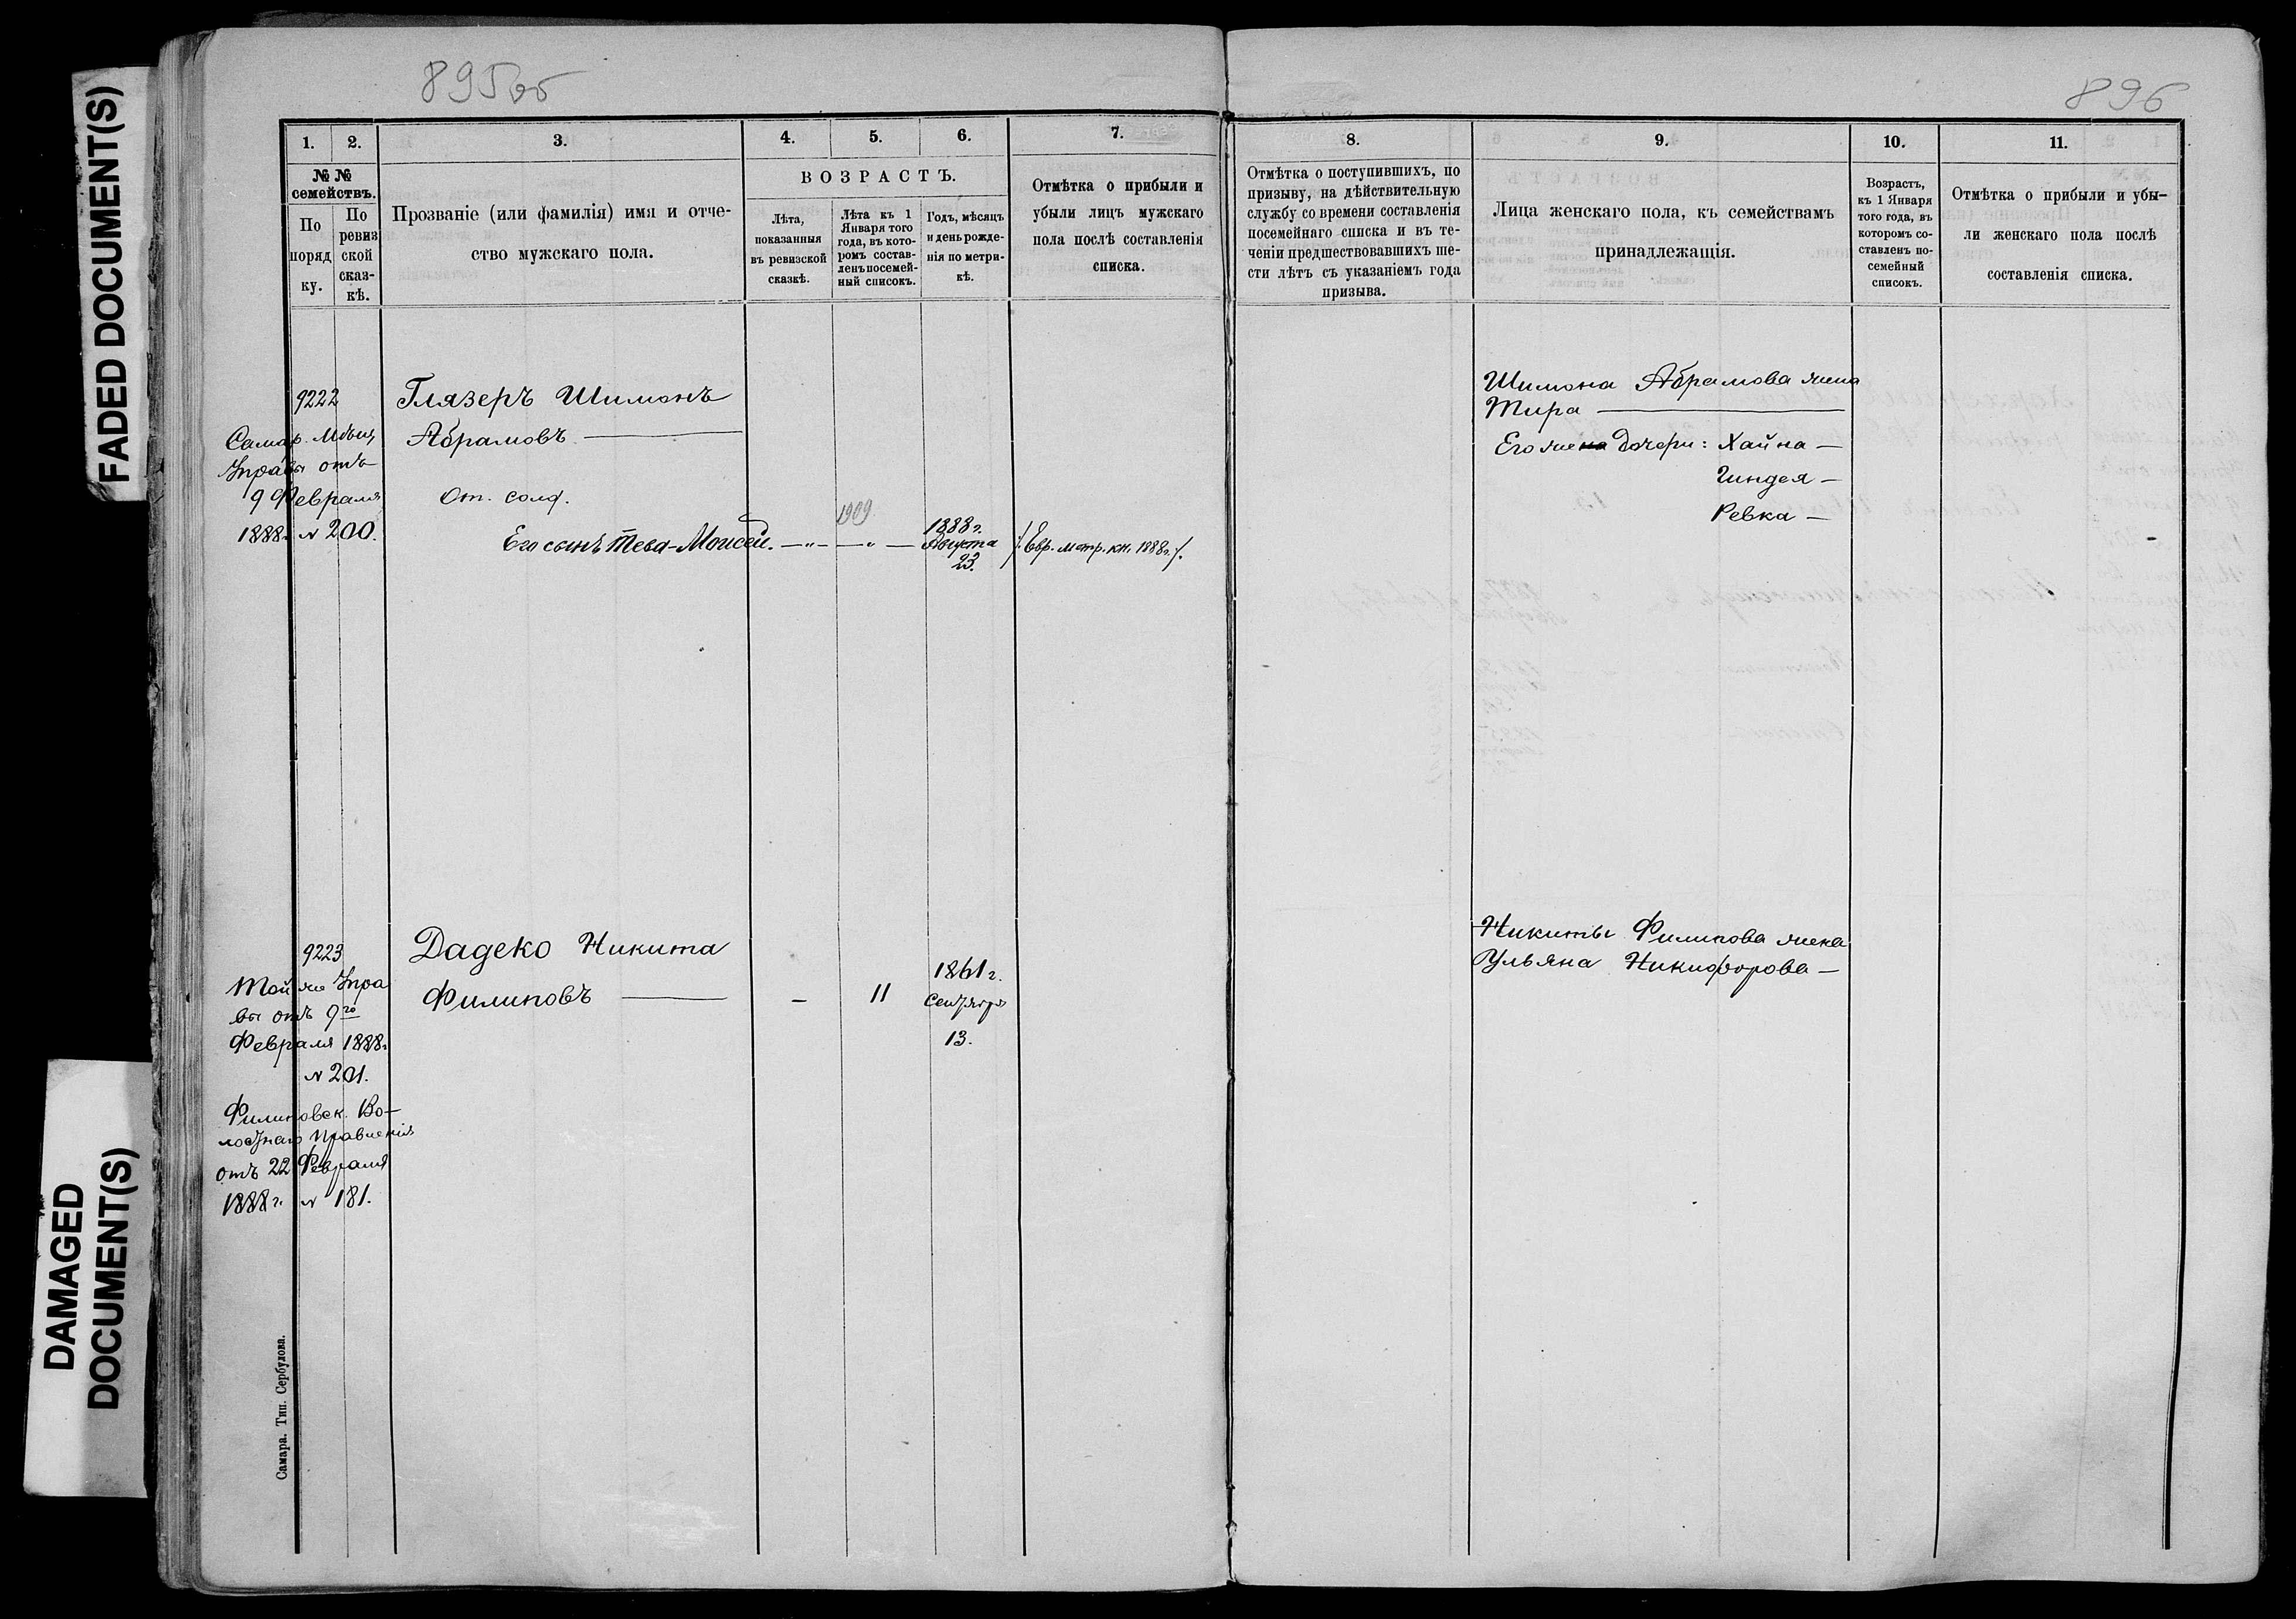 FADED DOCUMENT(S)
DAMAGED
DOCUMENT(S)
895об
896
1.
2.
3.
4.
5.
6.
7.
8.
9.
10.
11.
№ №
семействъ.
По
поряд
ку.
По
ревиз
ской
сказ-
кѣ.
Прозваніе (или фамилія) имя и отче-
ство мужскаго пола.
ВОЗРАСТЪ.
Лѣта,
показанныя
въ ревизской
сказкѣ.
Лѣта къ 1
Января того
года, въ кото-
ромъ состав-
ленъ посемей-
ный списокъ.
Годъ, мѣсяцъ
и день рожде-
нія по метри-
кѣ.
Отмѣтка о прибыли и
убыли лицъ мужскаго
пола послѣ составленія
списка.
Отмѣтка о поступившихъ, по
призыву, на дѣйствительную
службу со времени составленія
посемейнаго списка и въ те-
ченіи предшествовавшихъ ше-
сти лѣтъ съ указаніемъ года
призыва.
Лица женскаго пола, къ семействамъ
принадлежащія.
Возрастъ,
къ 1 Января
того года, въ
которомъ со-
ставленъ по-
семейный
списокъ.
Отмѣтка о прибыли и убы-
ли женскаго пола послѣ
составленія списка.
9222
Самар. Мѣщ.
Управы отъ
9 Февраля
1888г. № 200.
Глязеръ Шимонъ
Абрамовъ —
От. солд.
Его сынъ Тева-Моисей. — „ — — „ —
1909
1888г.
Августа
23.
/. Евр. метр. кн. 1888г. /.
Шимона Абрамова жена
Мира —
Его жена дочери: Хайна —
Гиндея —
Ревка —
9223
Той же Упра
вы отъ 9го
Февраля 1888г
№ 201.
Филиповск. Во-
лостнаго Правленія
отъ 22 Февраля
1888г. № 181.
Дадеко Никита
Филиповъ — – 11
1861г.
Сентября
13.
Никиты Филипова жена
Ульяна Никифорова —
Самара. Тип. Сербулова.